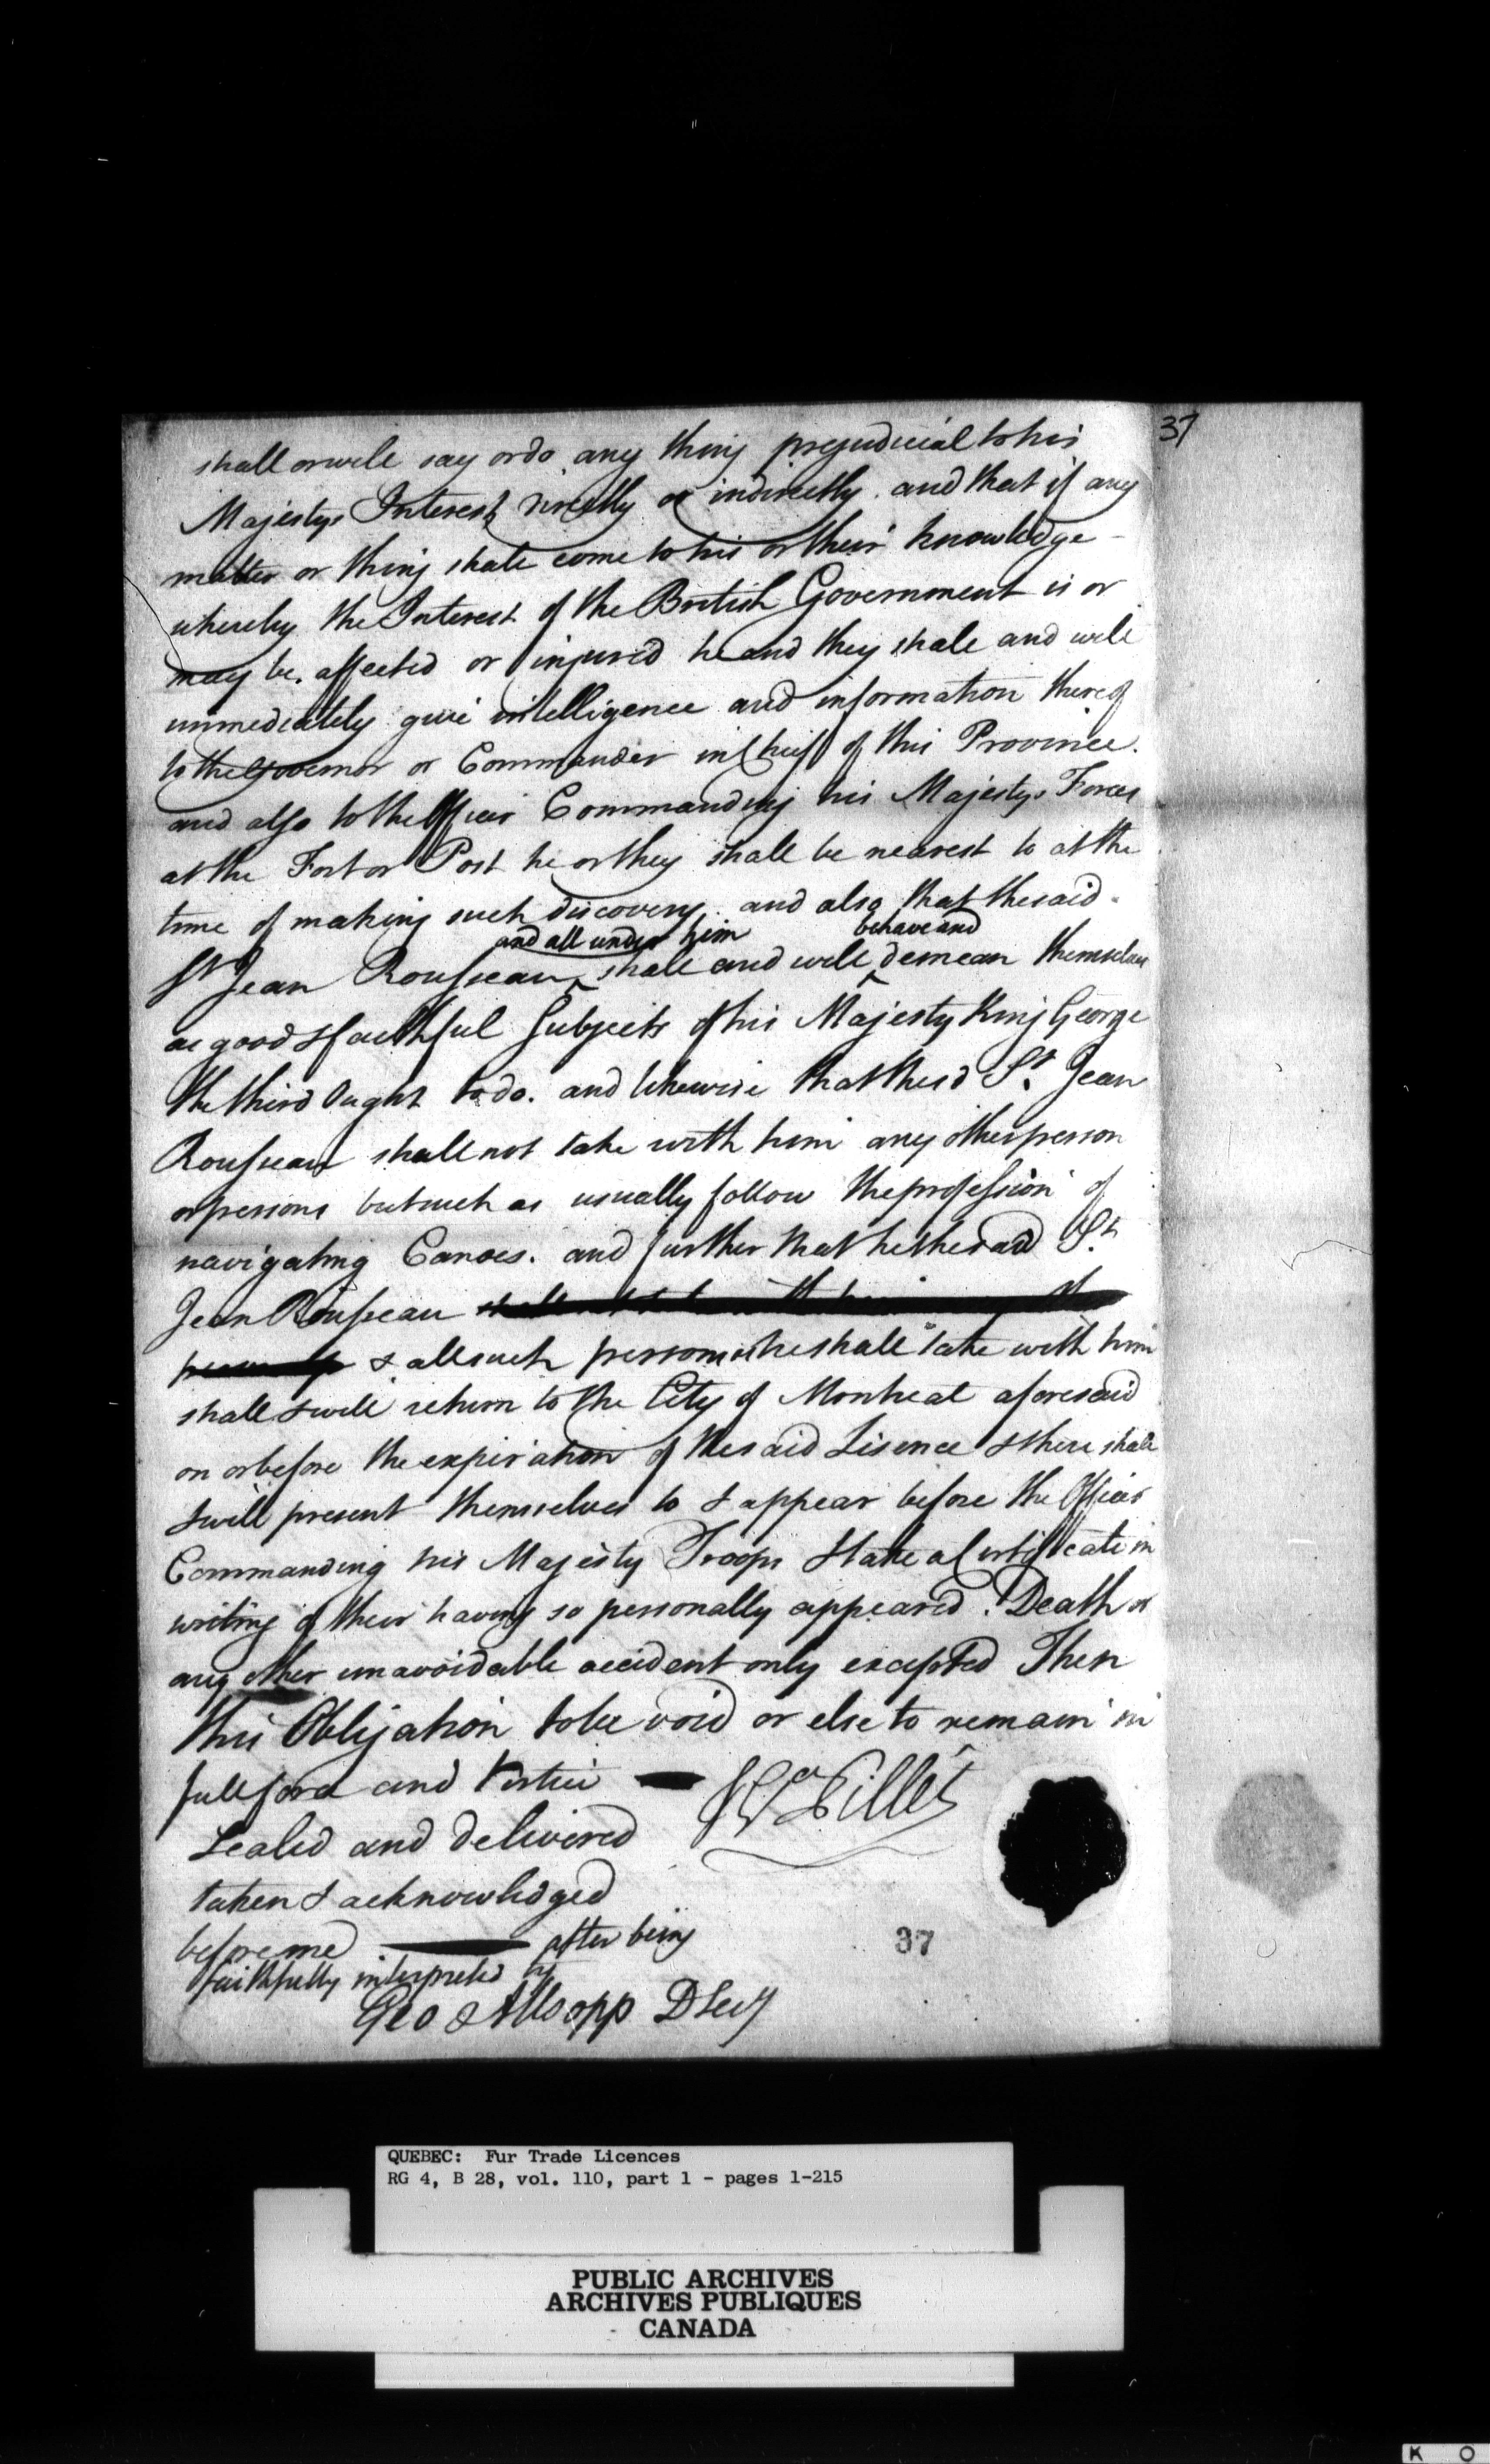 37
shall or will say or do any thing prejudicial to his
Majestys Interest directly or indirectly. and that if any
matter or thing shall come to his or their knowledge
whereby the Interest of the British Government is or
may be affected or injured he and they shall and will
immediately give intelligence and information thereof
to the Governor or Commander in Chief of this Province.
and also to the Officer Commanding his Majestys Forces
at the Fort or Post he or they shall be nearest to at the
time of making such discovery. and also that the said
and all under him behave and
St Jean Rousseau shall and will demean themselves
as good & faithful Subjects of his Majesty King George
the third Ought to do. and likewise that the sd St. Jean
Rousseau shall not take with him any other person
or persons but such as usually follow the profession of
navigating Canoes. and further that he the said St.
Jean Rousseau
& all such persons as he shall take with him
shall & will return to the City of Montreal aforesaid
on or before the expiration of the said Lisence & there shall
& will present themselves to & appear before the Officer
Commanding his Majesty Troops & take a Certificate in
writing of their having so personally appeared. Death or
any other unavoidable accident only excepted Then
this Obligation to be void or else to remain in
full force and Virtue
Sealed and delivered
taken & acknowledged
before me after being
faithfully interpreted by
Geo Allsopp D Secy
37
QUEBEC: Fur Trade Licences
RG 4, B 28, vol. 110, part 1 - pages 1-215
PUBLIC ARCHIVES
ARCHIVES PUBLIQUES
CANADA
K O